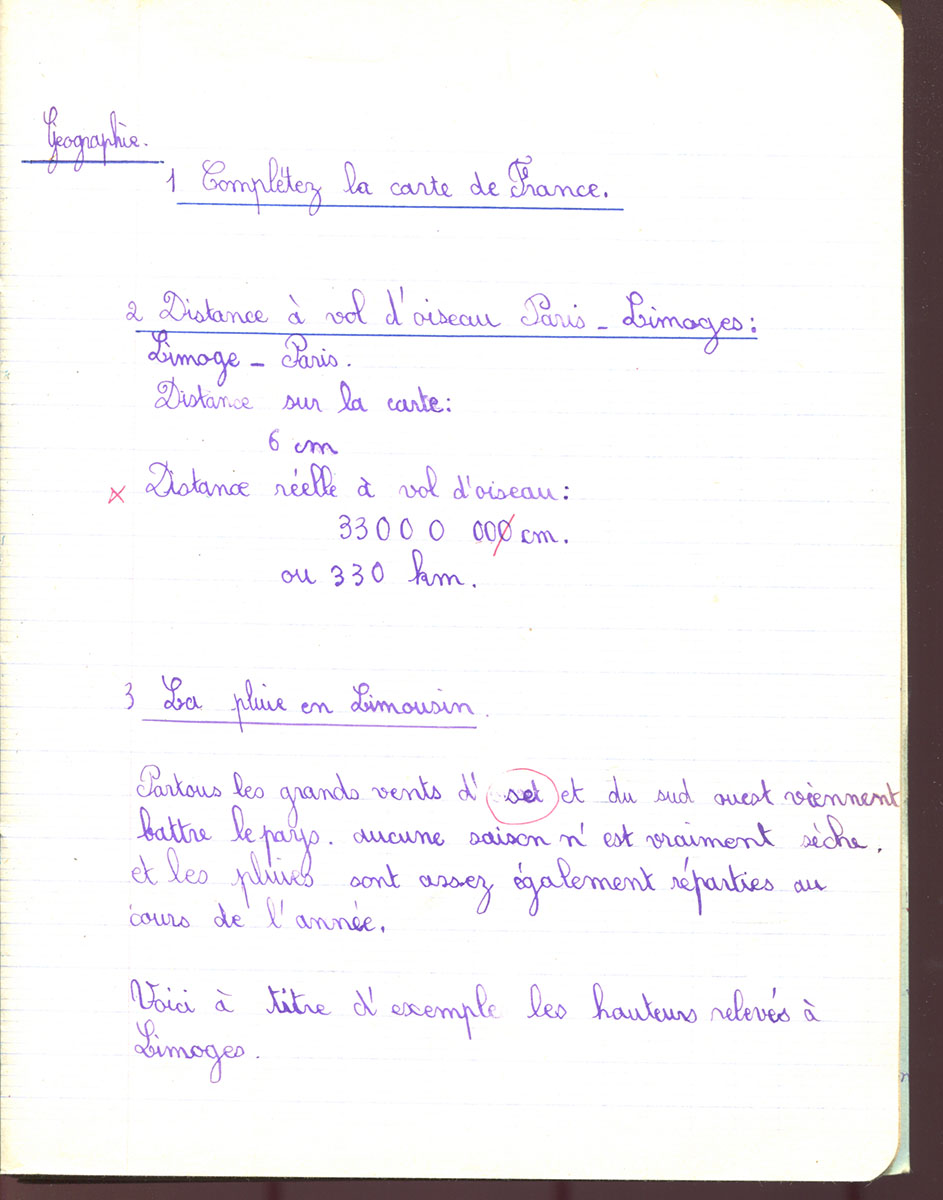 Géographie.
1 Complétez la carte de France.
2 Distance à vol d'oiseau Paris - Limoges :
Limoge - Paris.
Distance sur la carte :
6 cm
x Distance réelle à vol d'oiseau :
33000 000 cm.
ou 330 km.
3 La pluie en Limousin.
Partous les grands vents d' set et du sud ouest viennent
battre le pays. aucune saison n'est vraiment sèche.
et les pluies sont assez également réparties au
cours de l'année.
Voici à titre d'exemple les hauteurs relevés à
Limoges.